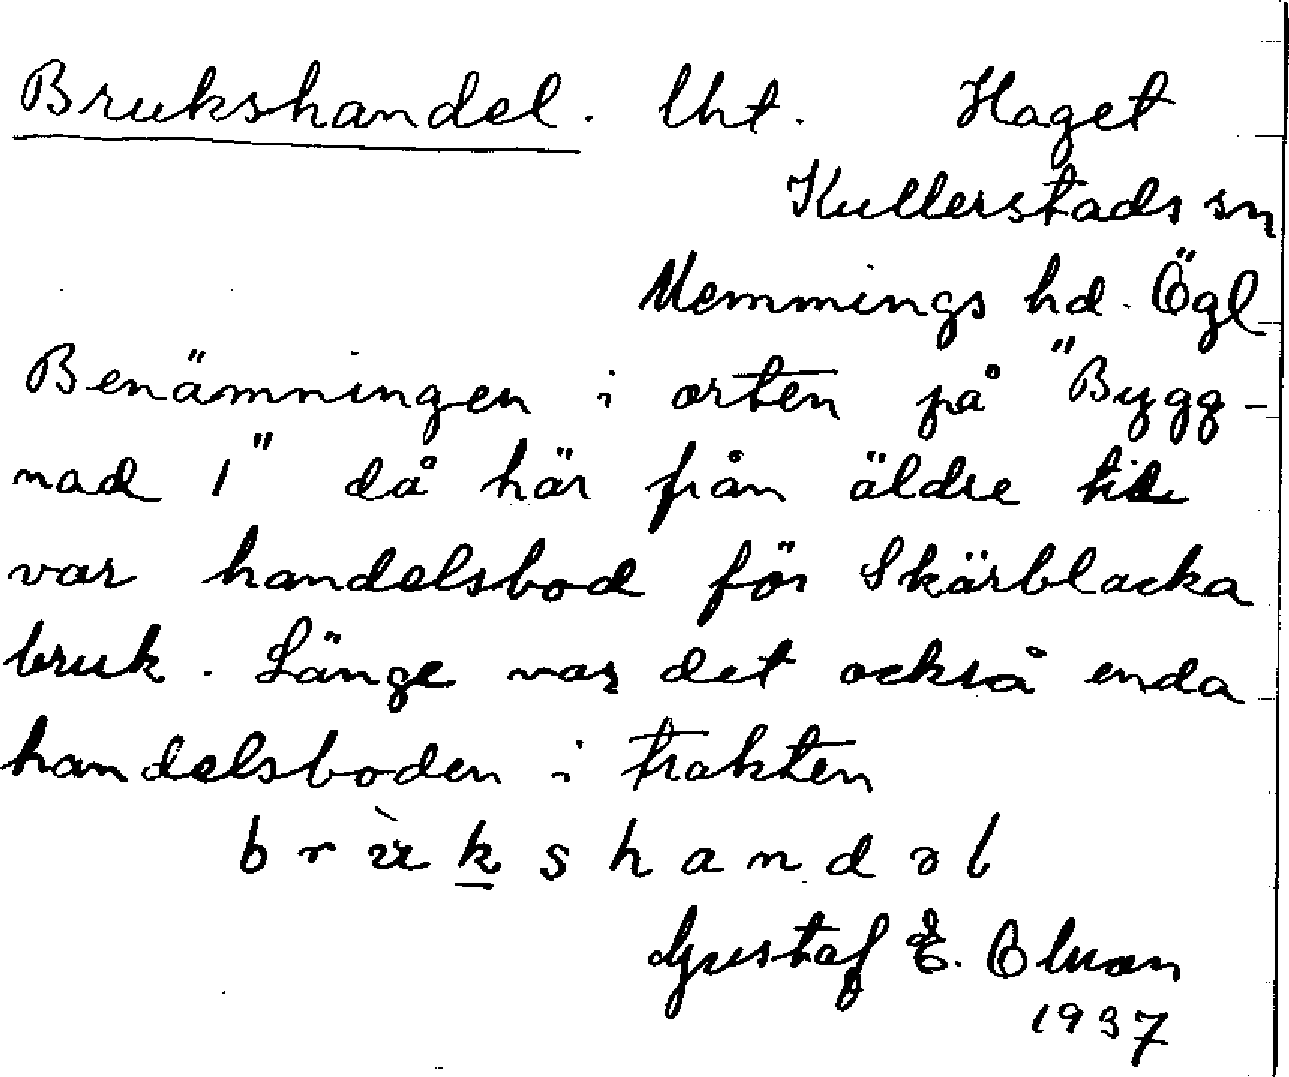 Brukshandel. Uht. Haget
Kullerstads sn
Memmings hd. Ögl
Benämningen i orten på "Bygg-
nad 1" då här från äldre tid
var handelsbod för Skärblacka
bruk. Länge var det också enda
handelsboden i trakten
brùkshandəl
Gustaf E.
1937